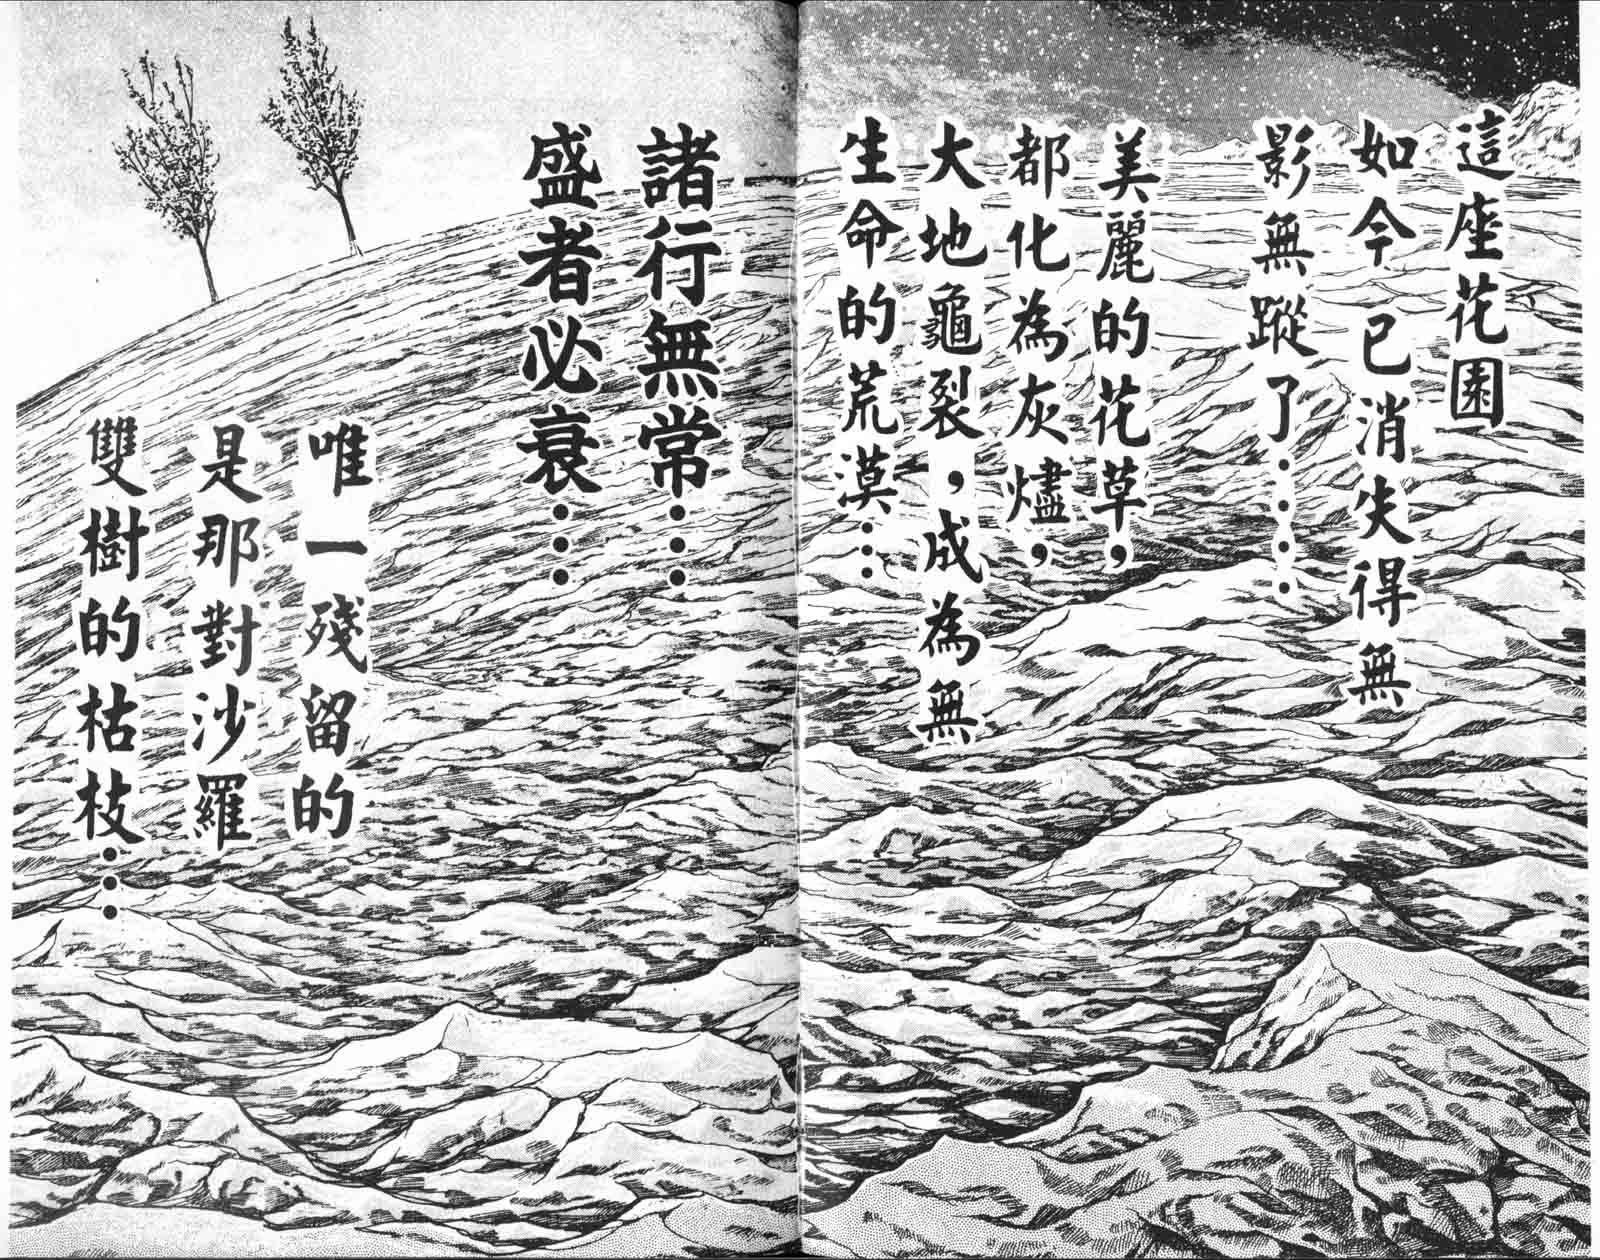 這座花園
如今已消失得無
影無蹤了……
美麗的花草，
都化為灰燼，
大地龜裂，成為無
生命的荒漠…
諸行無常…
盛者必衰…
唯一殘留的
是那對沙羅
雙樹的枯枝…